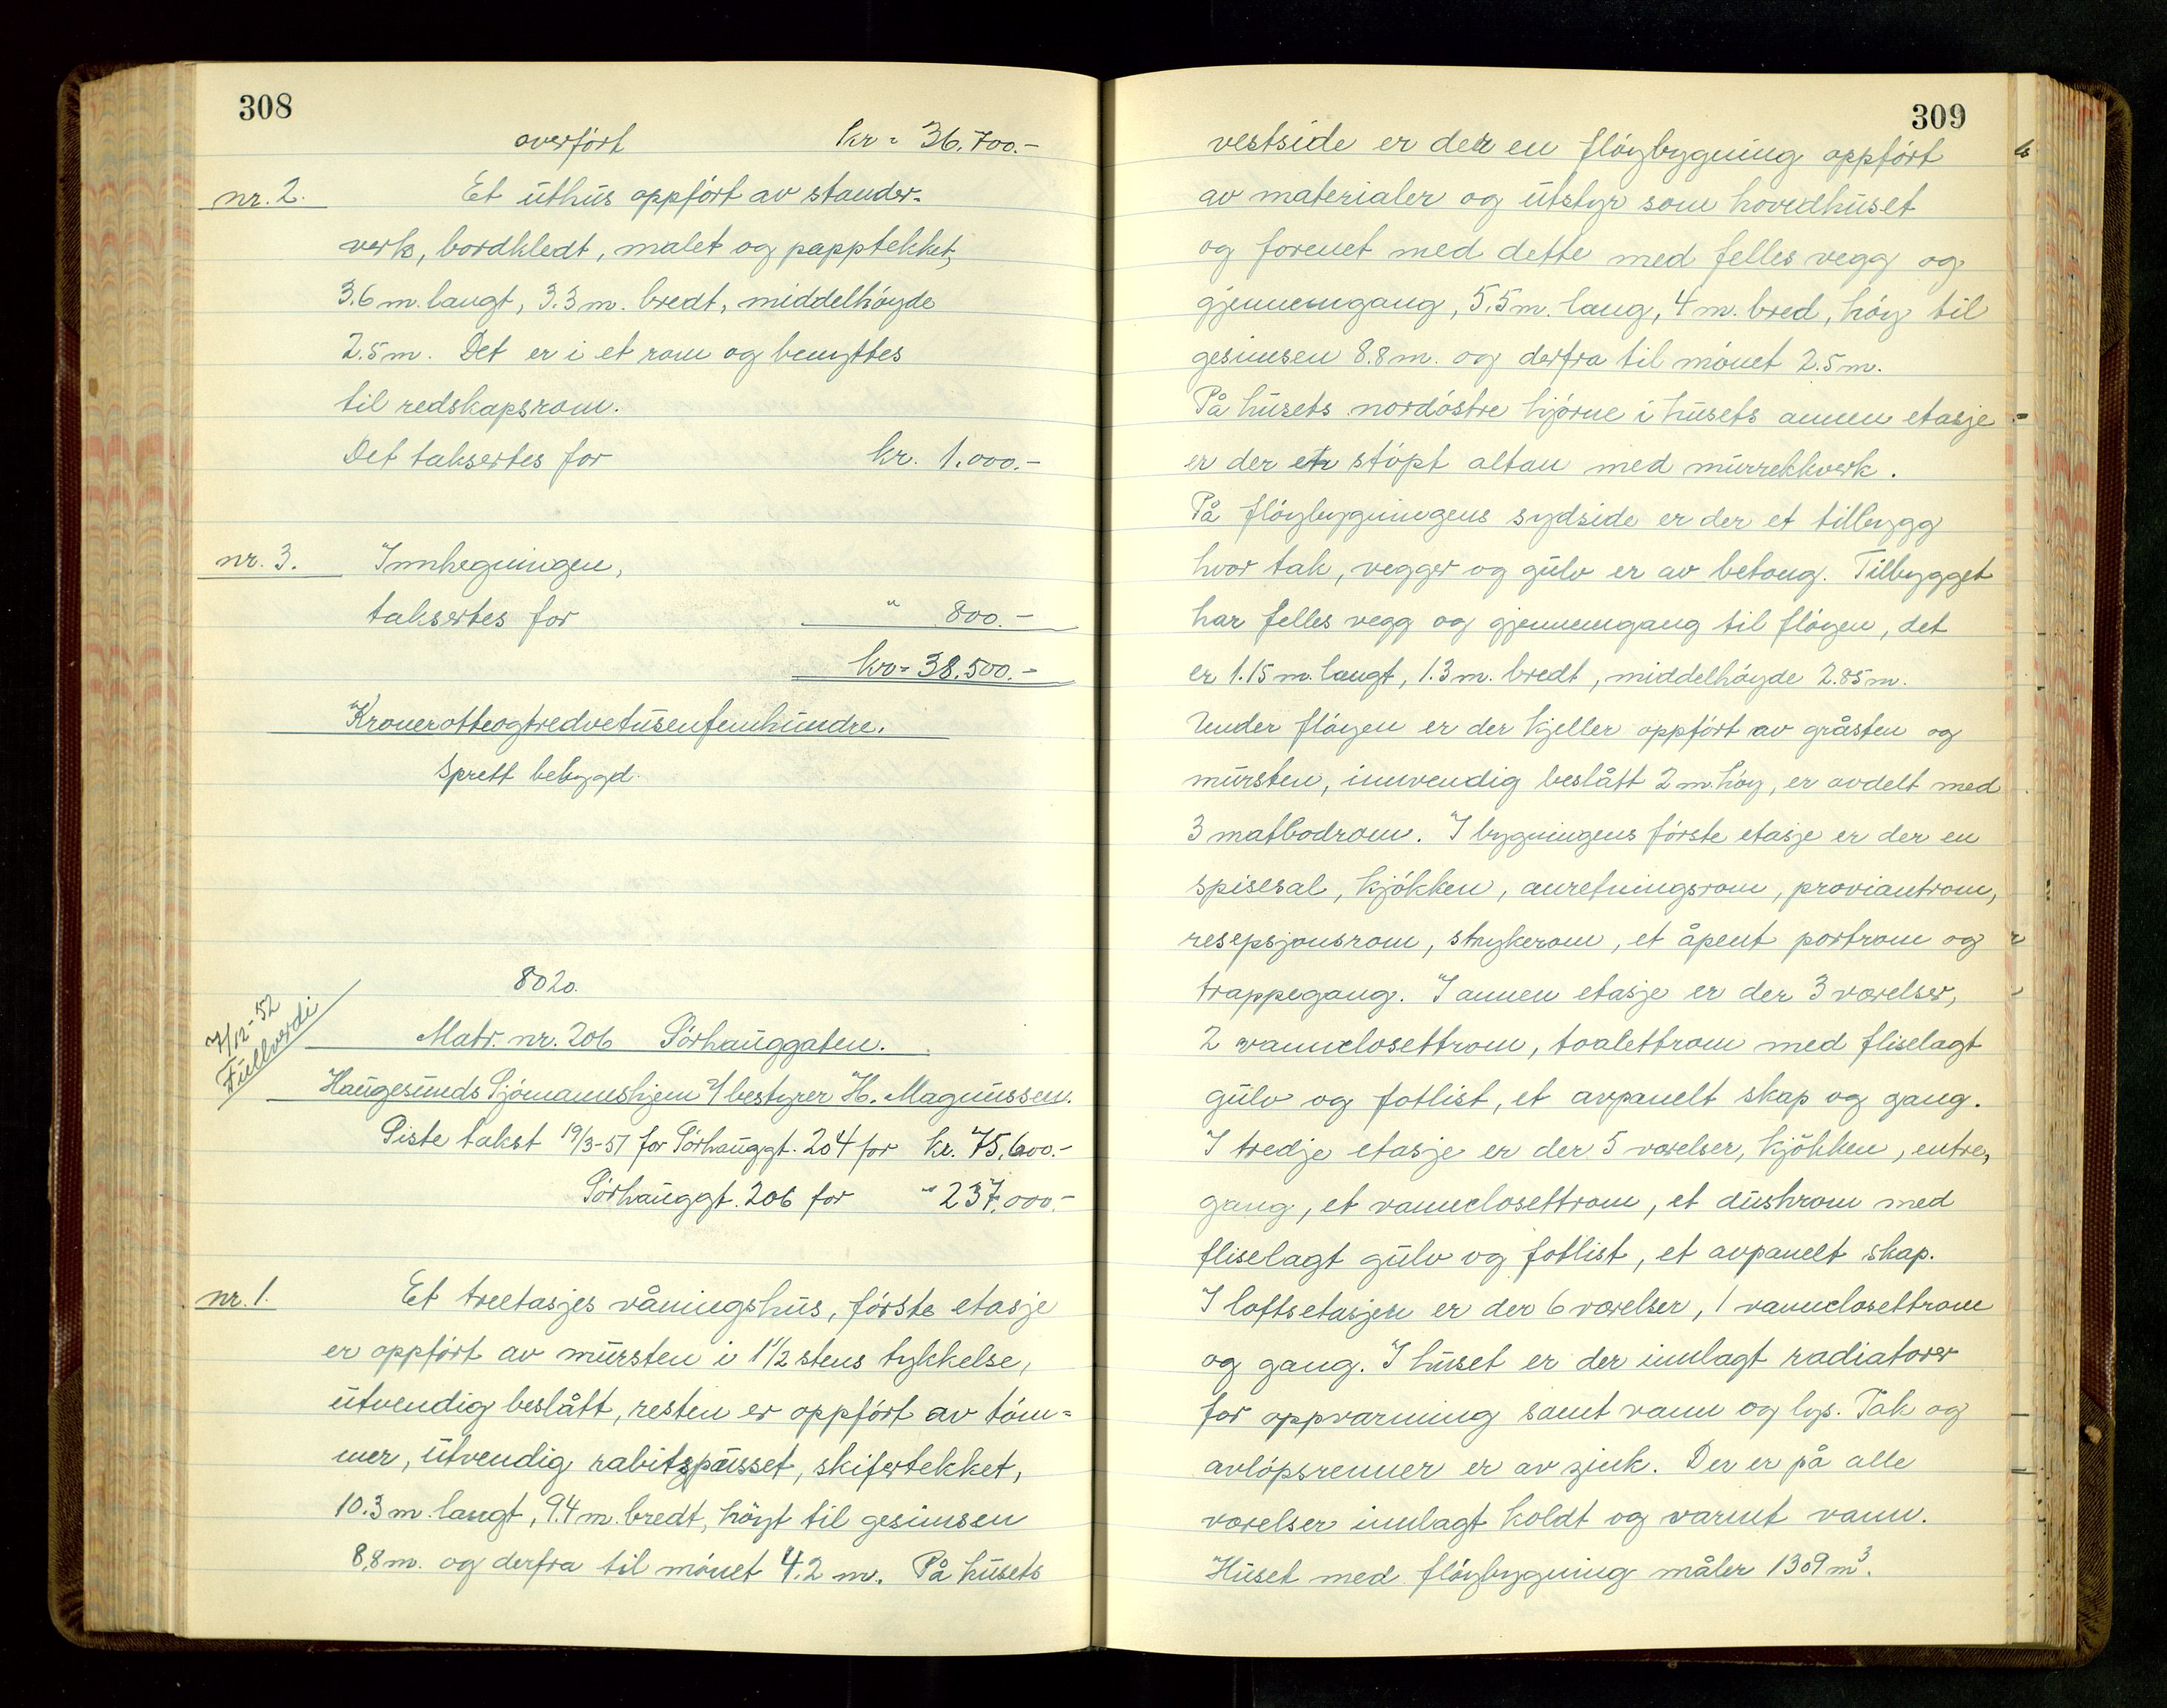 308
overført kr = 36.700.-
nr. 2. Et uthus oppført av stander=
verk, bordkledt, malet og papptekket,
3.6 m. langt, 3.3 m. bredt, middelhøyde
2.5 m. Det er i et rom og benyttes
til redskapsrom.
Det taksertes for kr. 1.000.-
nr. 3. Innhegningen,
taksertes for " 800.-
kr = 38.500.-
Kronerotteogtredvetusenfemhundre.
Sprett bebygd.
8020.
4/12-52
Fullverdi
Matr. nr. 206 Sørhauggaten.
Haugesunds Sjømannshjem v/ bestyrer H. Magnussen.
Siste takst 19/3-51 for Sørhauggt. 204 for kr. 75.600.-
Sørhauggt. 206 for " 237.000.-
nr. 1. Et treetasjes våningshus, første etasje
er oppført av mursten i 1 1/2 stens tykkelse,
utvendig beslått, resten er oppført av tøm=
mer, utvendig rabitspusset, skifertekket,
10.3 m. langt, 9.4 m. bredt, høyt til gesimsen
8.8 m. og derfra til mønet 4.2 m. På husets
309
vestside er der en fløybygning oppført
av materialer og utstyr som hovedhuset
og forenet med dette med felles vegg og
gjennemgang, 5.5 m. lang, 4 m. bred, høy til
gesimsen 8.8 m. og derfra til mønet 2.5 m.
På husets nordøstre hjørne i husets annen etasje
er der en støpt altan med murrekkverk.
På fløybygningens sydside er der et tilbygg
hvor tak, vegger og gulv er av betong. Tilbygget
har felles vegg og gjennemgang til fløyen, det
er 1.15 m. langt, 1.3 m. bredt, middelhøyde 2.85 m.
Under fløyen er der kjeller oppført av gråsten og
mursten, innvendig beslått 2 m. høy, er avdelt med
3 matbodrom. I bygningens første etasje er der en
spisesal, kjøkken, anretningsrom, proviantrom,
resepsjonsrom, strykerom, et åpent portrom og
trappegang. I annen etasje er der 3 værelser,
2 vannclosettrom, toalettrom med fliselagt
gulv og fotlist, et avpanelt skap og gang.
I tredje etasje er der 5 værelser, kjøkken, entre,
gang, et vannclosettrom, et dushrom med
fliselagt gulv og fotlist, et avpanelt skap.
I loftsetasjen er der 6 værelser, 1 vannclosettrom
og gang. I huset er der innlagt radiatorer
for oppvarming samt vann og lys. Tak og
avløpsrenner er av zink. Der er på alle
værelser innlagt koldt og varmt vann.
Huset med fløybygning måler 1309 m³.